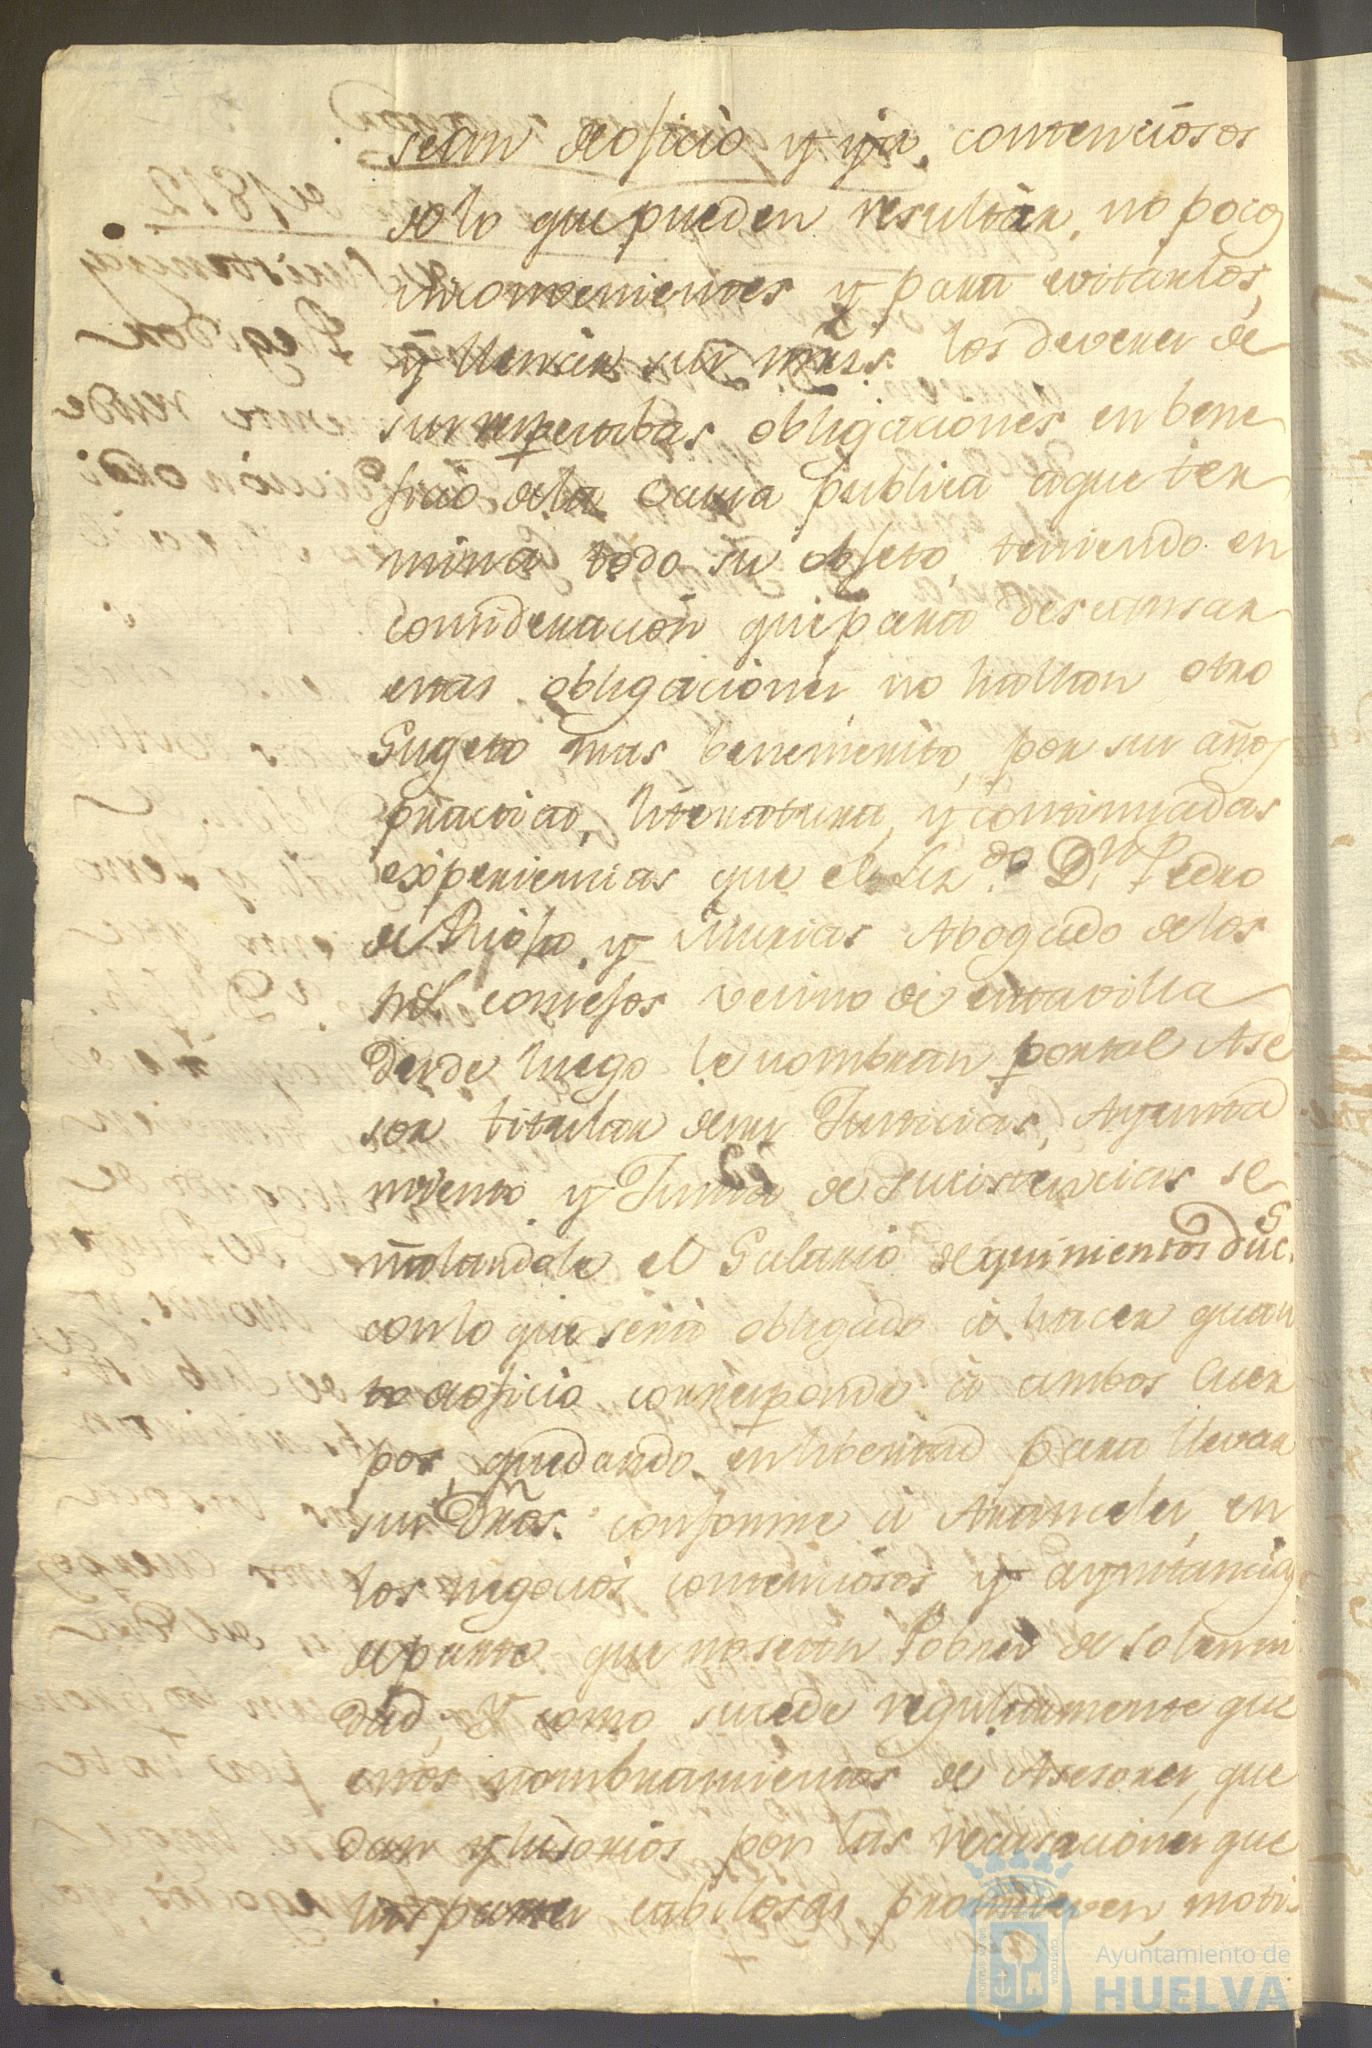 sean de oficio y ya contenciosos
solo que pueden resultar, no pocos
inconvenientes y para evitarlos,
y llenar sus mrzs. los deveres de
sus respectibas obligaciones en bene
ficio dela causa publica aque ter
mina todo su objeto, teniendo en
consideracion que para descansar
estas obligaciones no hallan otro
Sugeto mas benemerito, por sus años
practica, literatura, y continuadas
experiencias que el Lizdo. Dn. Pedro
de Riofo y Murias Abogado delos
Rs. consejos vecino de esta villa
desde luego le nombran por tal Ase
sor titular de sus Justicias, Ayunta
miento y Junta de Sucistencias se
ñalandole el Salario de quinientos ducs.
con lo que será obligado á hacer quan
to de oficio corresponde á ambos Cuer
pos, quedando en libertad para llevar
sus Dros. conforme á Aranceles, en
los negocios contenciosos y aynstancias
de parte que no sean Pobres de solemni
dad, Y como sucede regularmente que
estos nombramientos de Asesores, que
dan ylusorios por las recusaciones que
las partes cabilosas promueven, motis
Ayuntamiento de
HUELVA